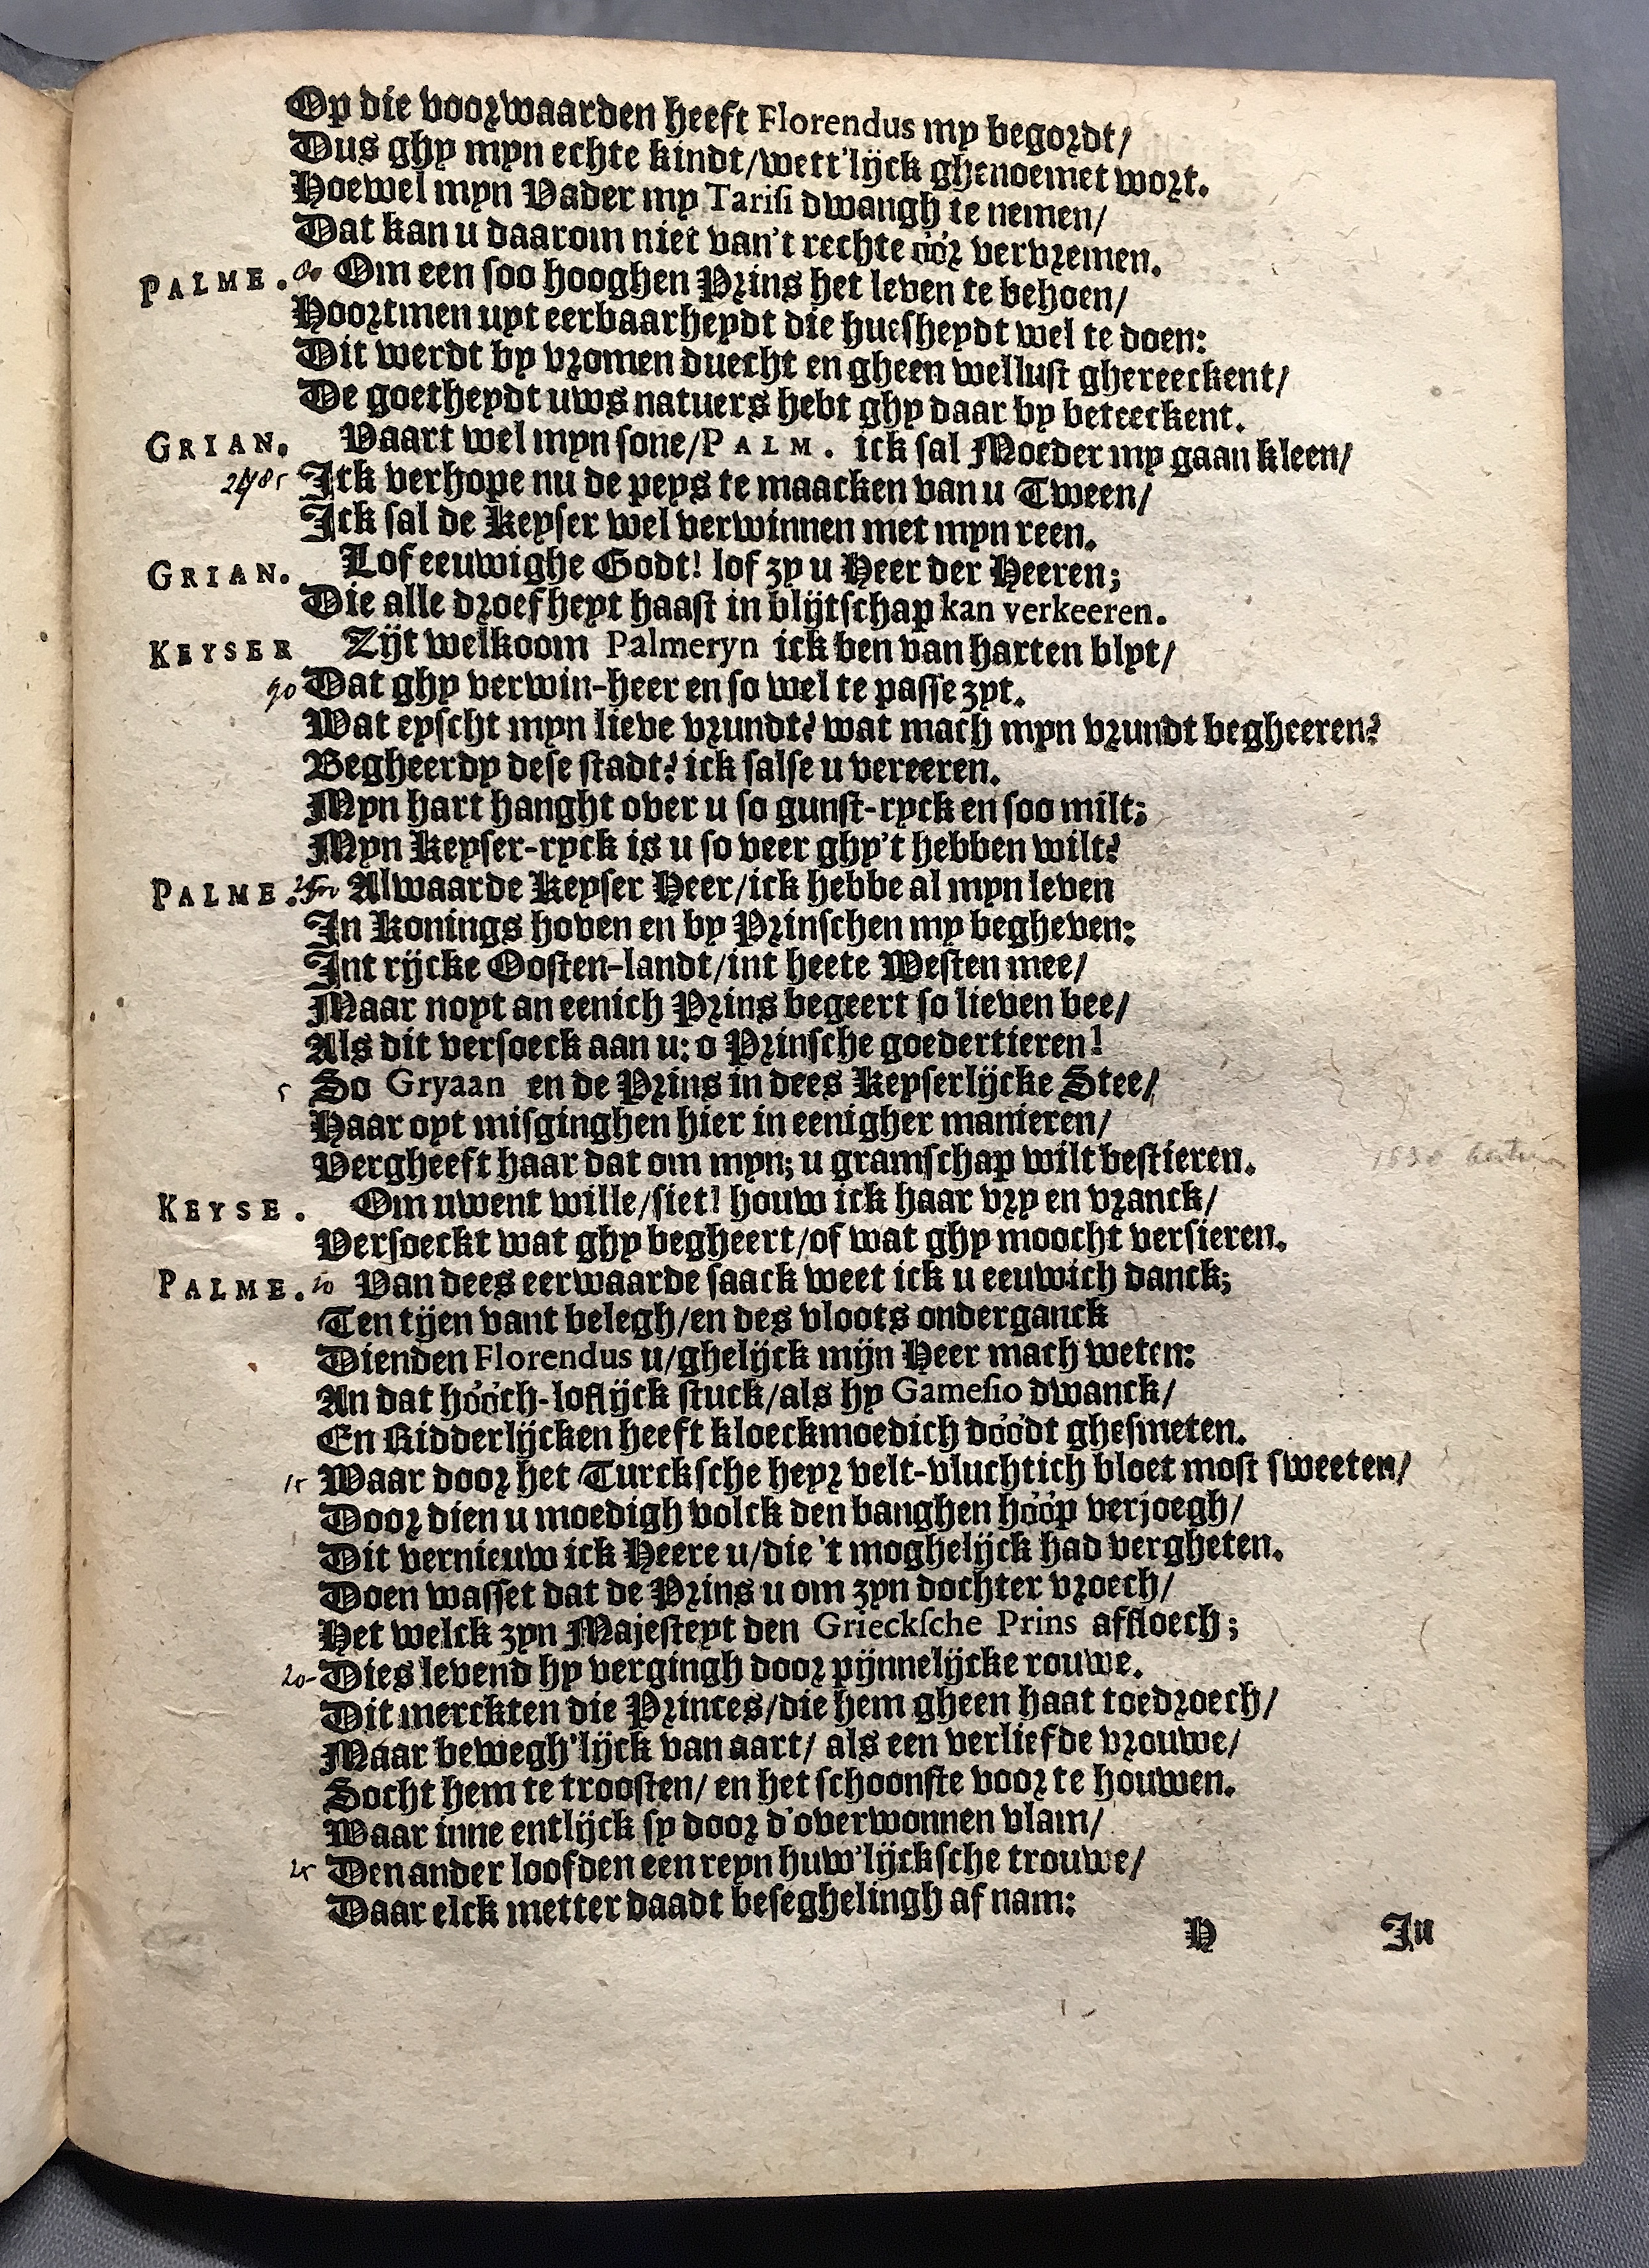 Op die voorwaarden heeft Florendus my begordt/
Dus ghy myn echte kindt/wett'lijck ghenoemet wort.
Hoewel myn Vader my Tarisi dwangh te nemen/
Dat kan u daarom niet van't rechte óór vervremen.
PALME. Om een soo hooghen Prins het leven te behoen/
Hoortmen uyt eerbaarheydt die huesheydt wel te doen:
Dit werdt by vromen duecht en gheen wellust ghereeckent/
De goetheydt uws natuers hebt ghy daar by beteeckent.
GRIAN. Vaart wel myn sone/PALM. ick sal Moeder my gaan kleen/
2485 Ick verhope nu de peys te maacken van u Tween/
Ick sal de Keyser wel verwinnen met myn reen.
GRIAN. Lof eeuwighe Godt! lof zy u Heer der Heeren;
Die alle droefheyt haast in blijtschap kan verkeeren.
KEYSER Zijt welkoom Palmeryn ick ben van harten blyt/
90 Dat ghy verwin-heer en so wel te passe zyt.
Wat eyscht myn lieve vrundt? wat mach myn vrundt begheeren?
Begheerdy dese stadt? ick salse u vereeren.
Myn hart hanght over u so gunst-ryck en soo milt;
Myn Keyser-ryck is u so veer ghy't hebben wilt?
PALME. Alwaarde Keyser Heer/ick hebbe al myn leven
In Konings hoven en by Prinschen my begheven:
Int rijcke Oosten-landt/int heete Westen mee/
Maar noyt an eenich Prins begeert so lieven bee/
Als dit versoeck aan u: o Prinsche goedertieren!
5 So Gryaan en de Prins in dees Keyserlijcke Stee/
Haar oyt misginghen hier in eenigher manieren/
Vergheeft haar dat om myn; u gramschap wilt bestieren.
KEYSE. Om uwent wille/siet! houw ick haar vry en vranck/
Versoeckt wat ghy begheert/of wat ghy moocht versieren.
PALME. 10 Van dees eerwaarde saack weet ick u eeuwich danck;
Ten tijen vant belegh/en des vloots onderganck
Dienden Florendus u/ghelijck mijn Heer mach weten:
An dat hóóch-loflijck stuck/als hy Gamesio dwanck/
En Ridderlijcken heeft kloeckmoedich dóódt ghesmeten.
15 Waar door het Turcksche heyr velt-vluchtich bloet most sweeten/
Door dien u moedigh volck den banghen hóóp verjoegh/
Dit vernieuw ick Heere u/die 't moghelijck had vergheten.
Doen wasset dat de Prins u om zyn dochter vroech/
Het welck zyn Majesteyt den Griecksche Prins affloech;
20 Dies levend hy vergingh door pijnnelijcke rouwe.
Dit merckten die Princes/die hem gheen haat toedroech/
Maar bewegh'lijck van aart/ als een verliefde vrouwe/
Socht hem te troosten/ en het schoonste voor te houwen.
Waar inne entlijck sy door d'overwonnen vlam/
25 Den ander loofden een reyn huw'lijcksche trouwe/
Daar elck metter daadt beseghelingh af nam:
H In